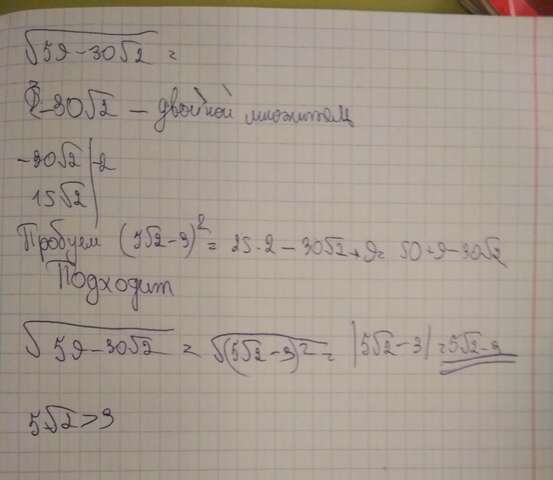 √(59-30√2) =
-30√2 - двойной множитель
-30√2 | -2
15√2 |
Пробуем (5√2-3)² = 25·2 - 30√2 + 9 = 50+9-30√2
Подходит
√(59-30√2) = √((5√2-3)²) = |5√2-3| = 5√2-3
5√2>3